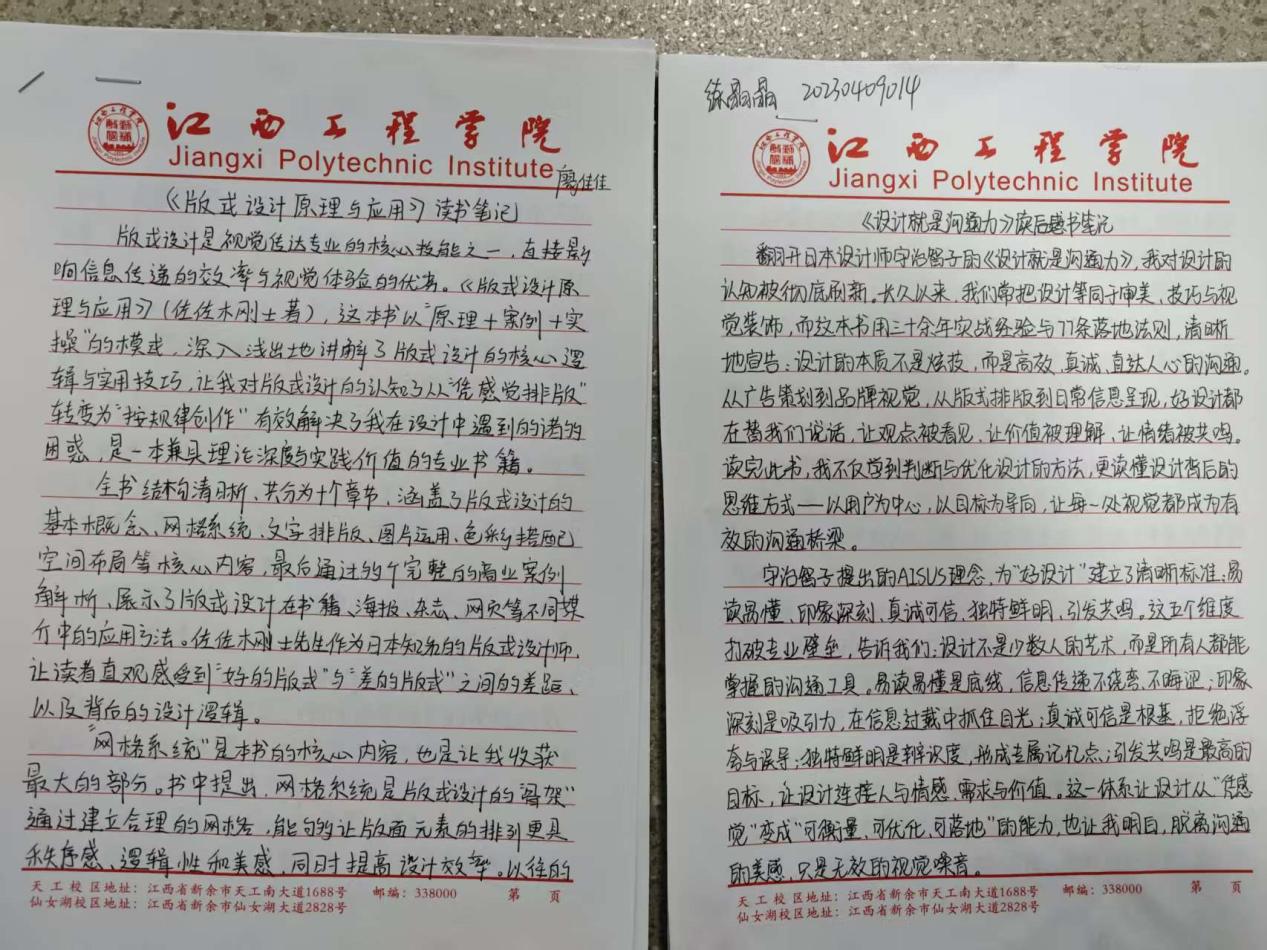 江西工程学院
Jiangxi Polytechnic Institute
廖佳佳
《版式设计原理与应用》读书笔记
版式设计是视觉传达专业的核心技能之一，直接影
响信息传递的效率与视觉体验的优劣。《版式设计原
理与应用》（佐佐木刚士著），这本书以“原理+案例+实
操”的模式，深入浅出地讲解了版式设计的核心逻
辑与实用技巧，让我对版式设计的认知了从“凭感觉排版”
转变为“按规律创作”有效解决了我在设计中遇到的诸多
困惑，是一本兼具理论深度与实践价值的专业书籍。
全书结构清晰、共分为十个章节，涵盖了版式设计的
基本概念、网格系统、文字排版、图片运用、色彩搭配
空间布局等核心内容，最后通过多个完整的商业案例
解析、展示了版式设计在书籍、海报、杂志、网页等不同媒
介中的应用方法。佐佐木刚士先生作为日本知名的版式设计师，
让读者直观感受到“好的版式”与“差的版式”之间的差距、
以及背后的设计逻辑。
“网格系统”是本书的核心内容，也是让我收获
最大的部分。书中提出，网格系统是版式设计的“骨架”
通过建立合理的网格，能够让版面元素的排列更具
秩序感、逻辑性和美感，同时提高设计效率。以往的
天工校区地址：江西省新余市天工南大道1688号 邮编：338000 第 页
仙女湖校区地址：江西省新余市仙女湖大道2828号
20230409014
江西工程学院
Jiangxi Polytechnic Institute
《设计就是沟通力》读后感书笔记
翻开日本设计师宇治智子的《设计就是沟通力》，我对设计的
认知被彻底刷新。长久以来，我们常把设计等同于审美、技巧与视
觉装饰，而这本书用三十余年实战经验与77条落地法则，清晰
地宣告：设计的本质不是炫技，而是高效、真诚、直达人心的沟通。
从广告策划到品牌视觉，从版式排版到日常信息呈现，好设计都
在替我们说话，让观点被看见，让价值被理解、让情绪被共鸣。
读完此书，我不仅学到判断与优化设计的方法，更读懂设计背后的
思维方式——以用户为中心，以目标为导向，让每一处视觉都成为有
效的沟通桥梁。
宇治智子提出的AISUS理念，为“好设计”建立了清晰标准：易
读易懂、印象深刻、真诚可信、独特鲜明、引发共鸣。这五个维度
打破专业壁垒，告诉我们：设计不是少数人的艺术，而是所有人都能
掌握的沟通工具。易读易懂是底线，信息传递不绕弯、不晦涩；印象
深刻是吸引力，在信息过载中抓住目光；真诚可信是根基，拒绝浮
夸与误导；独特鲜明是辨识度，形成专属记忆点；引发共鸣是最高的
目标，让设计连接人与情感、需求与价值。这一体系让设计从“凭感
觉”变成“可衡量、可优化、可落地”的能力，也让我明白，脱离沟通
的美感，只是无效的视觉噪音。
天工校区地址：江西省新余市天工南大道1688号 邮编：338000 第 页
仙女湖校区地址：江西省新余市仙女湖大道2828号